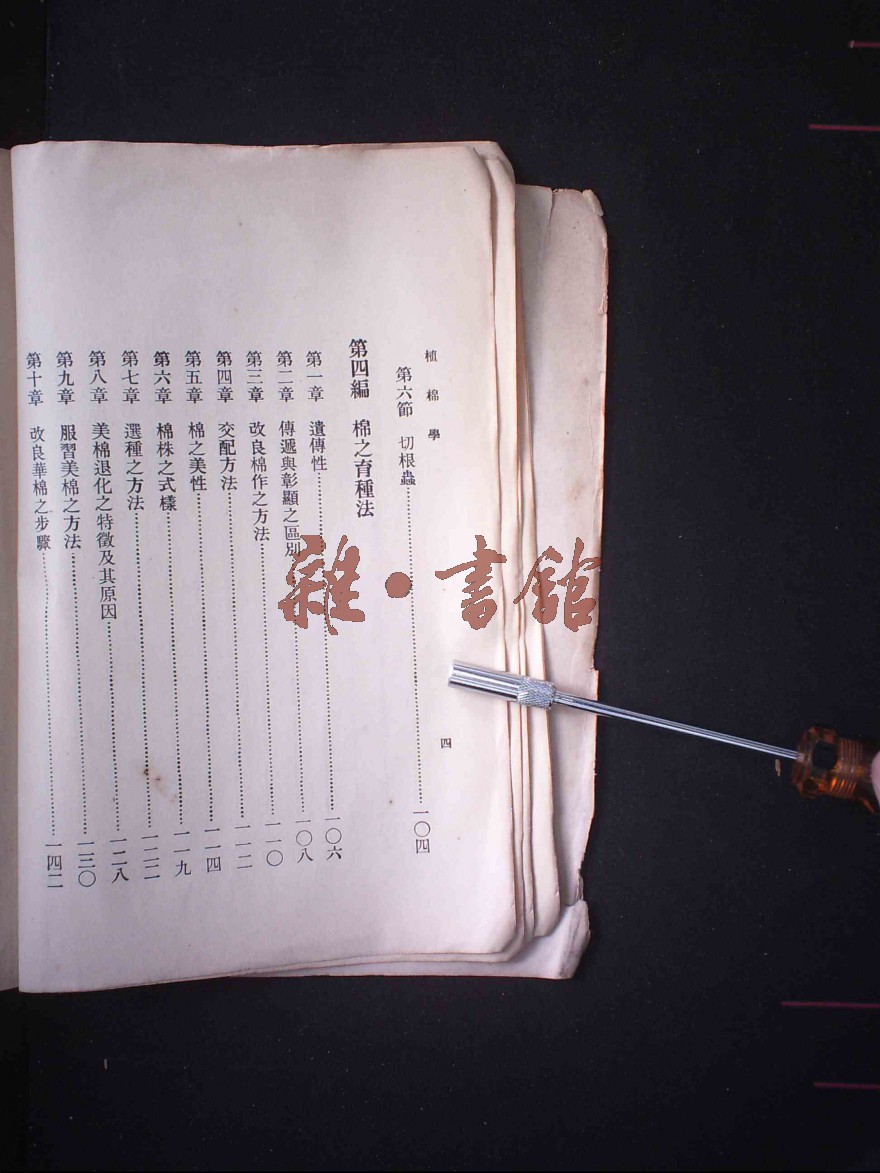 植棉學
四
第六節 切根蟲 一〇四
第四編 棉之育種法
第一章 遺傳性 一〇六
第二章 傳遞與彰顯之區別 一〇八
第三章 改良棉作之方法 一一〇
第四章 交配方法 一一二
第五章 棉之美性 一一四
第六章 棉株之式樣 一一九
第七章 選種之方法 一二二
第八章 美棉退化之特徵及其原因 一二八
第九章 服習美棉之方法 一三〇
第十章 改良華棉之步驟 一四二
雜·書館